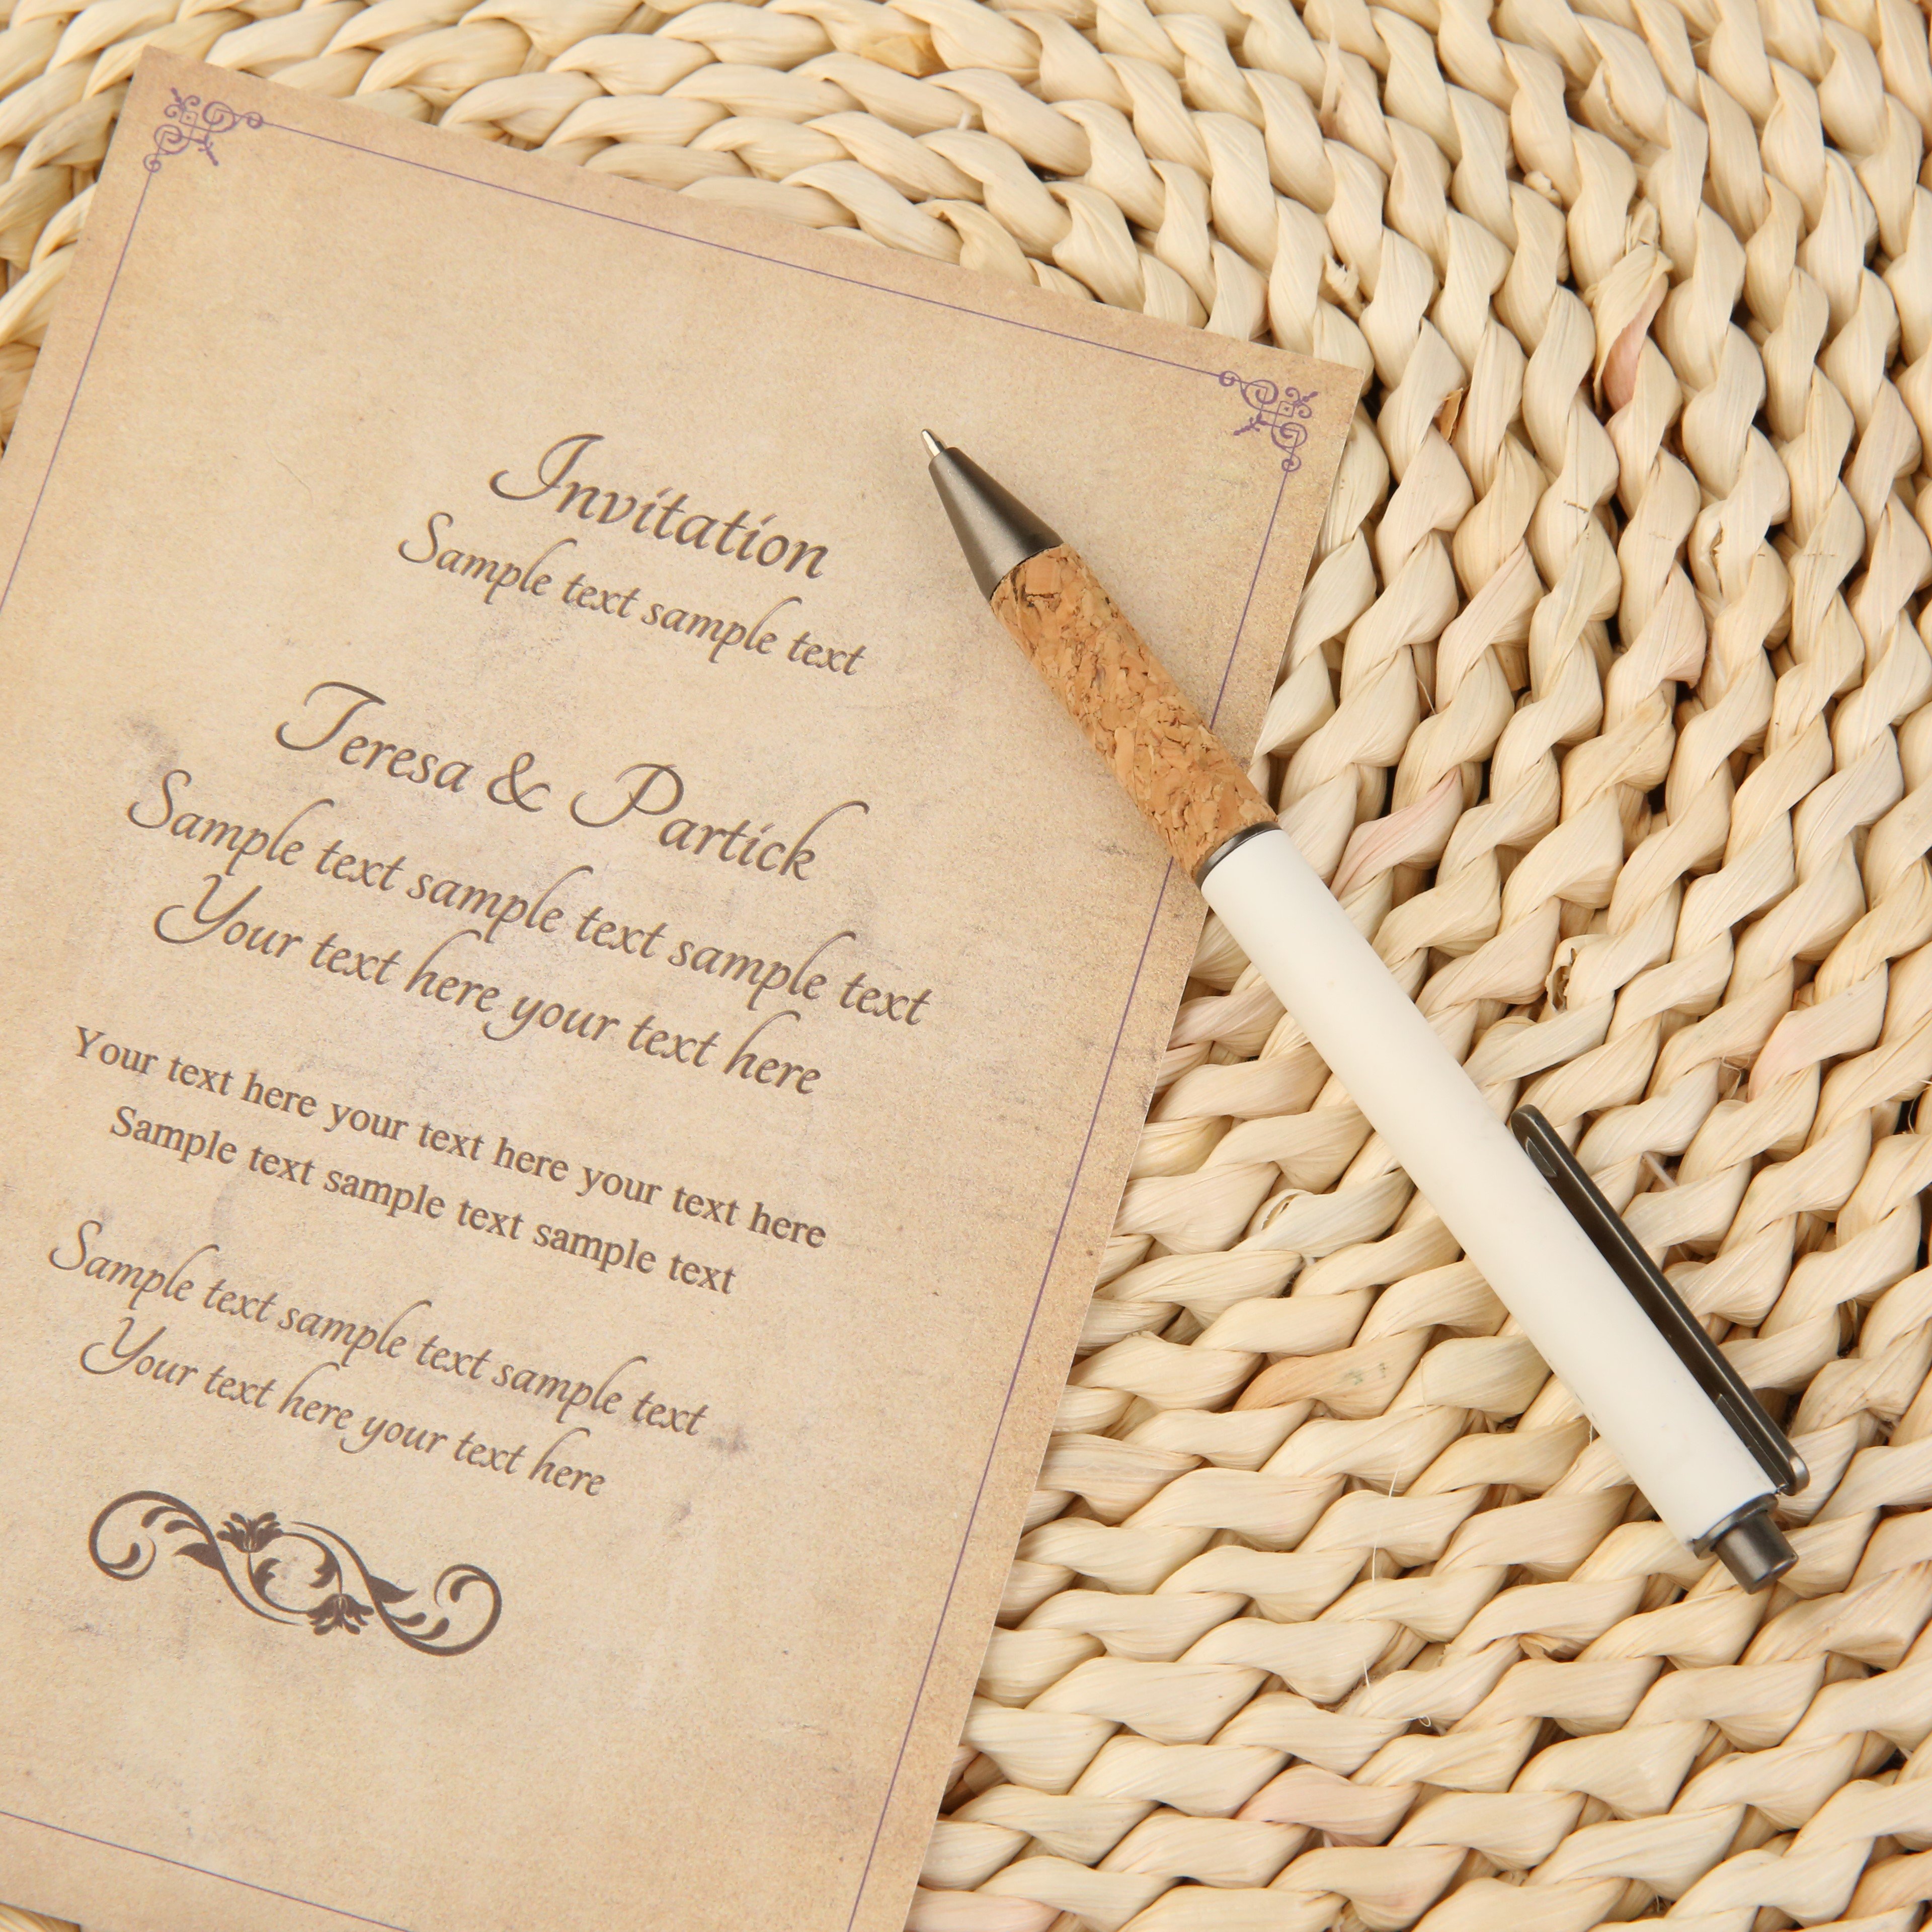 Invitation
Sample text sample text
Teresa & Partick
Sample text sample text sample text
Your text here your text here
Your text here your text here your text here
Sample text sample text sample text
Sample text sample text sample text
Your text here your text here